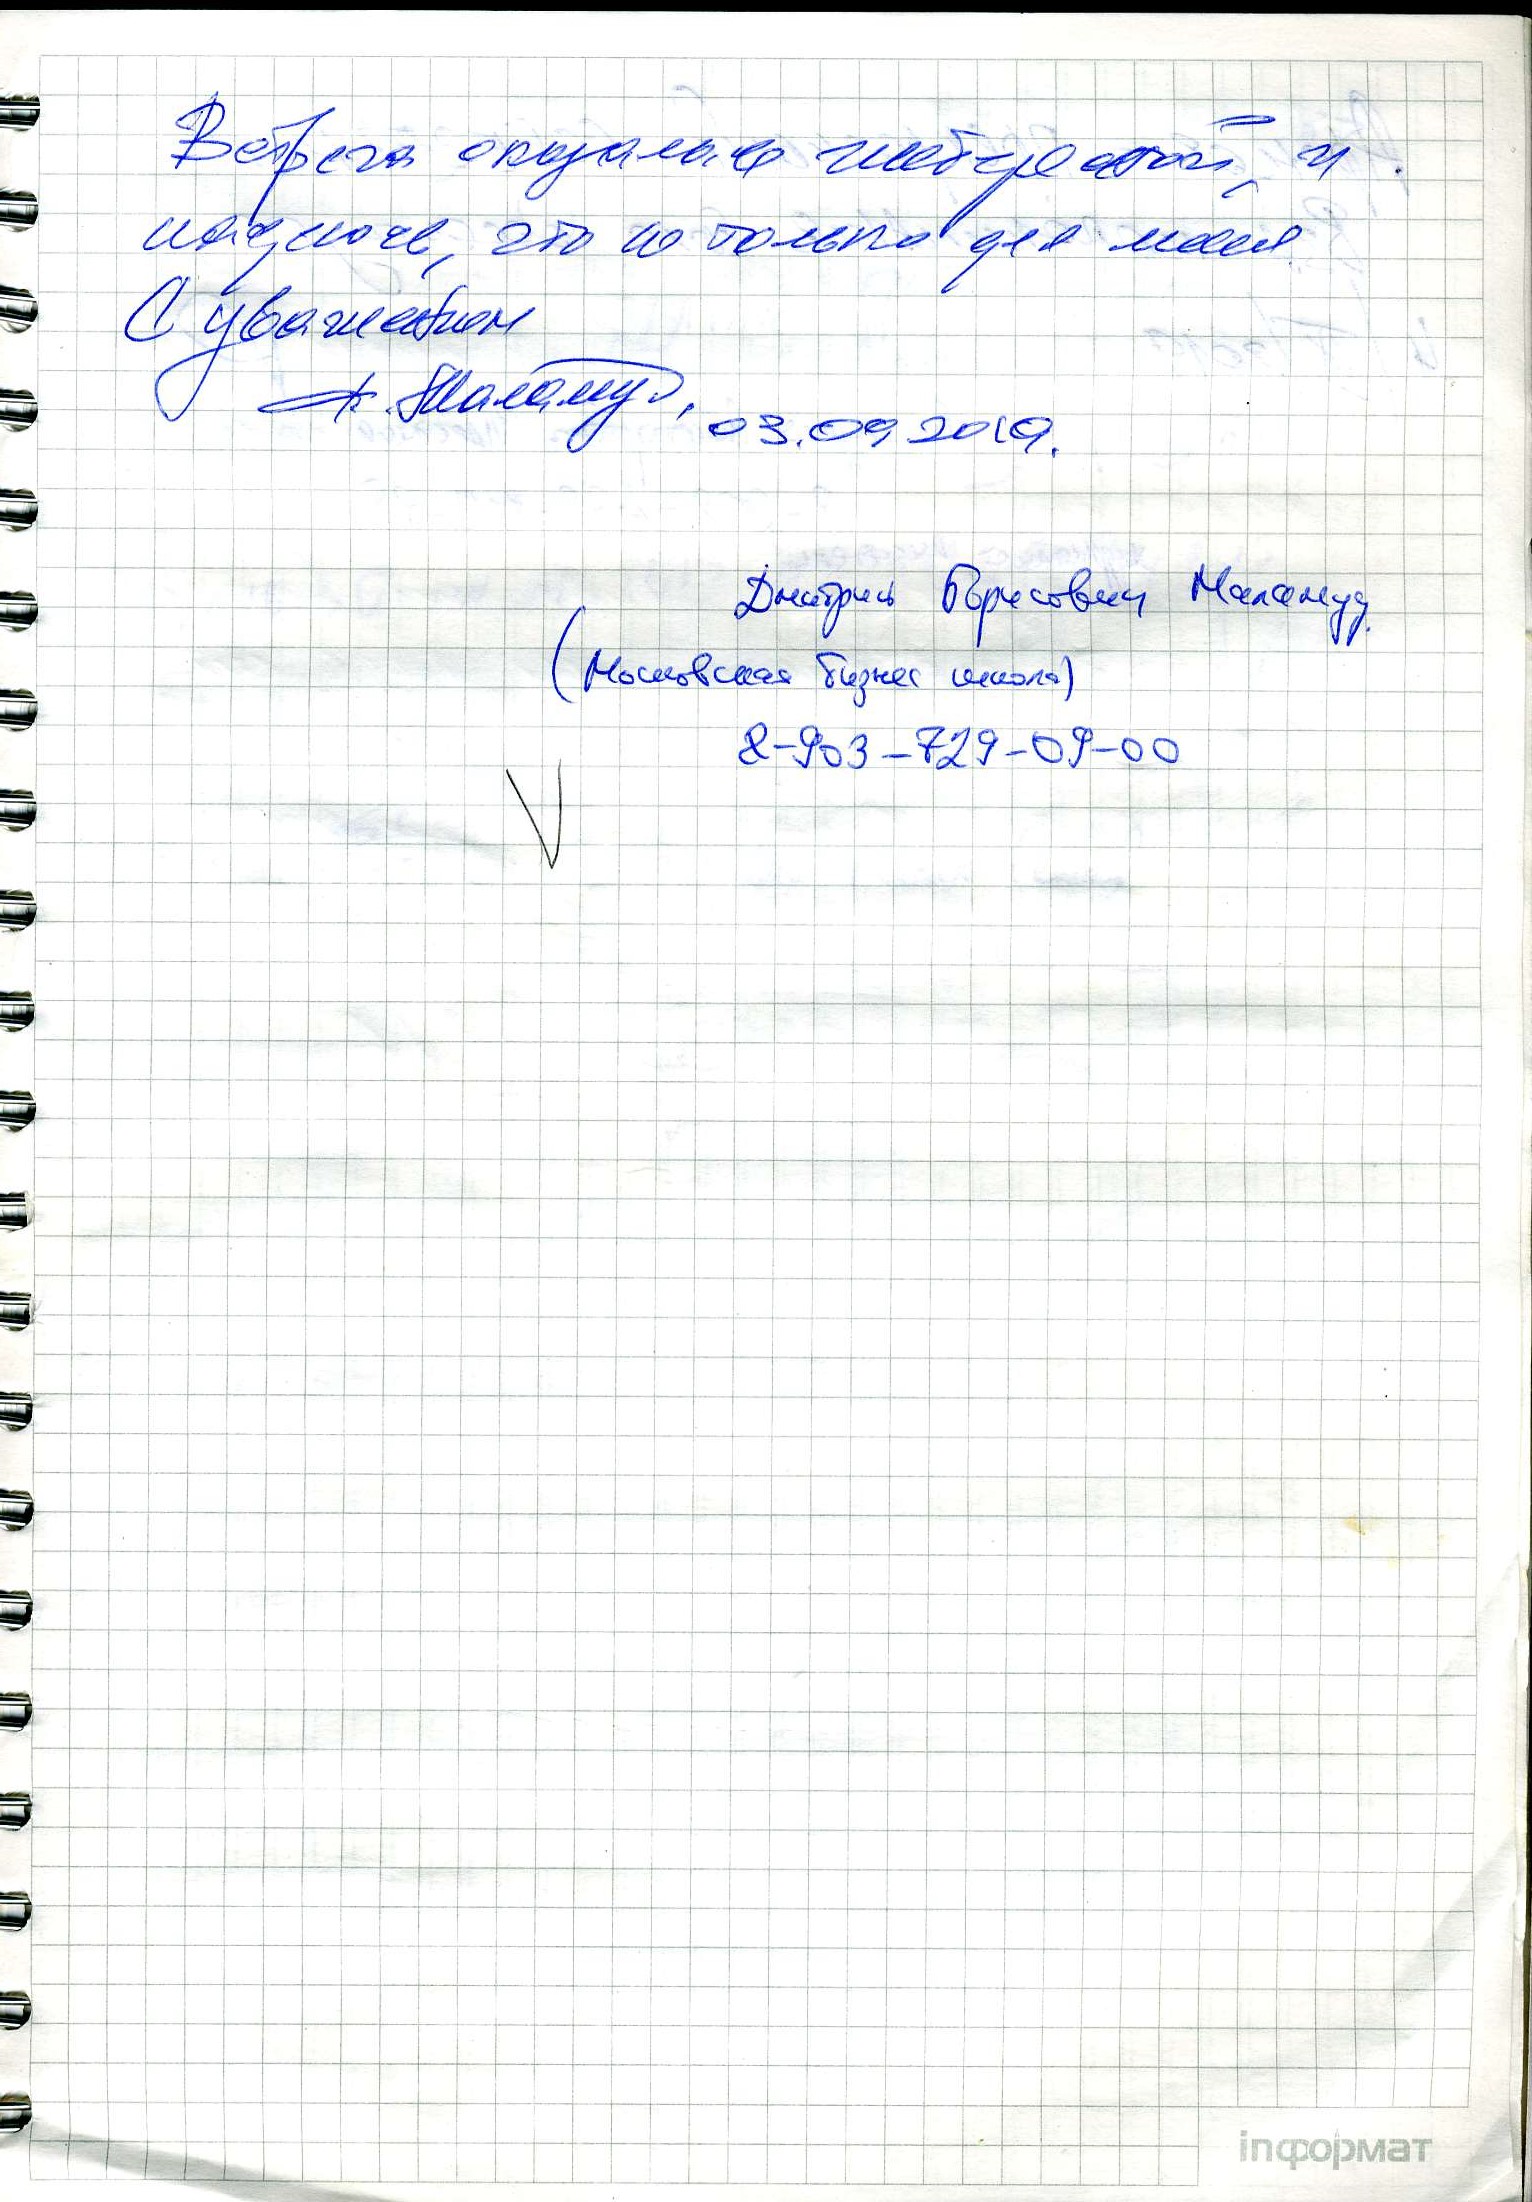 Встреча оказалась интересной, и
надеюсь, что не только для меня.
С уважением
Маламуд,
03.09.2019.
Дмитрий Борисович Маламуд
(Московская бизнес школа)
8-903-729-09-00
inформат